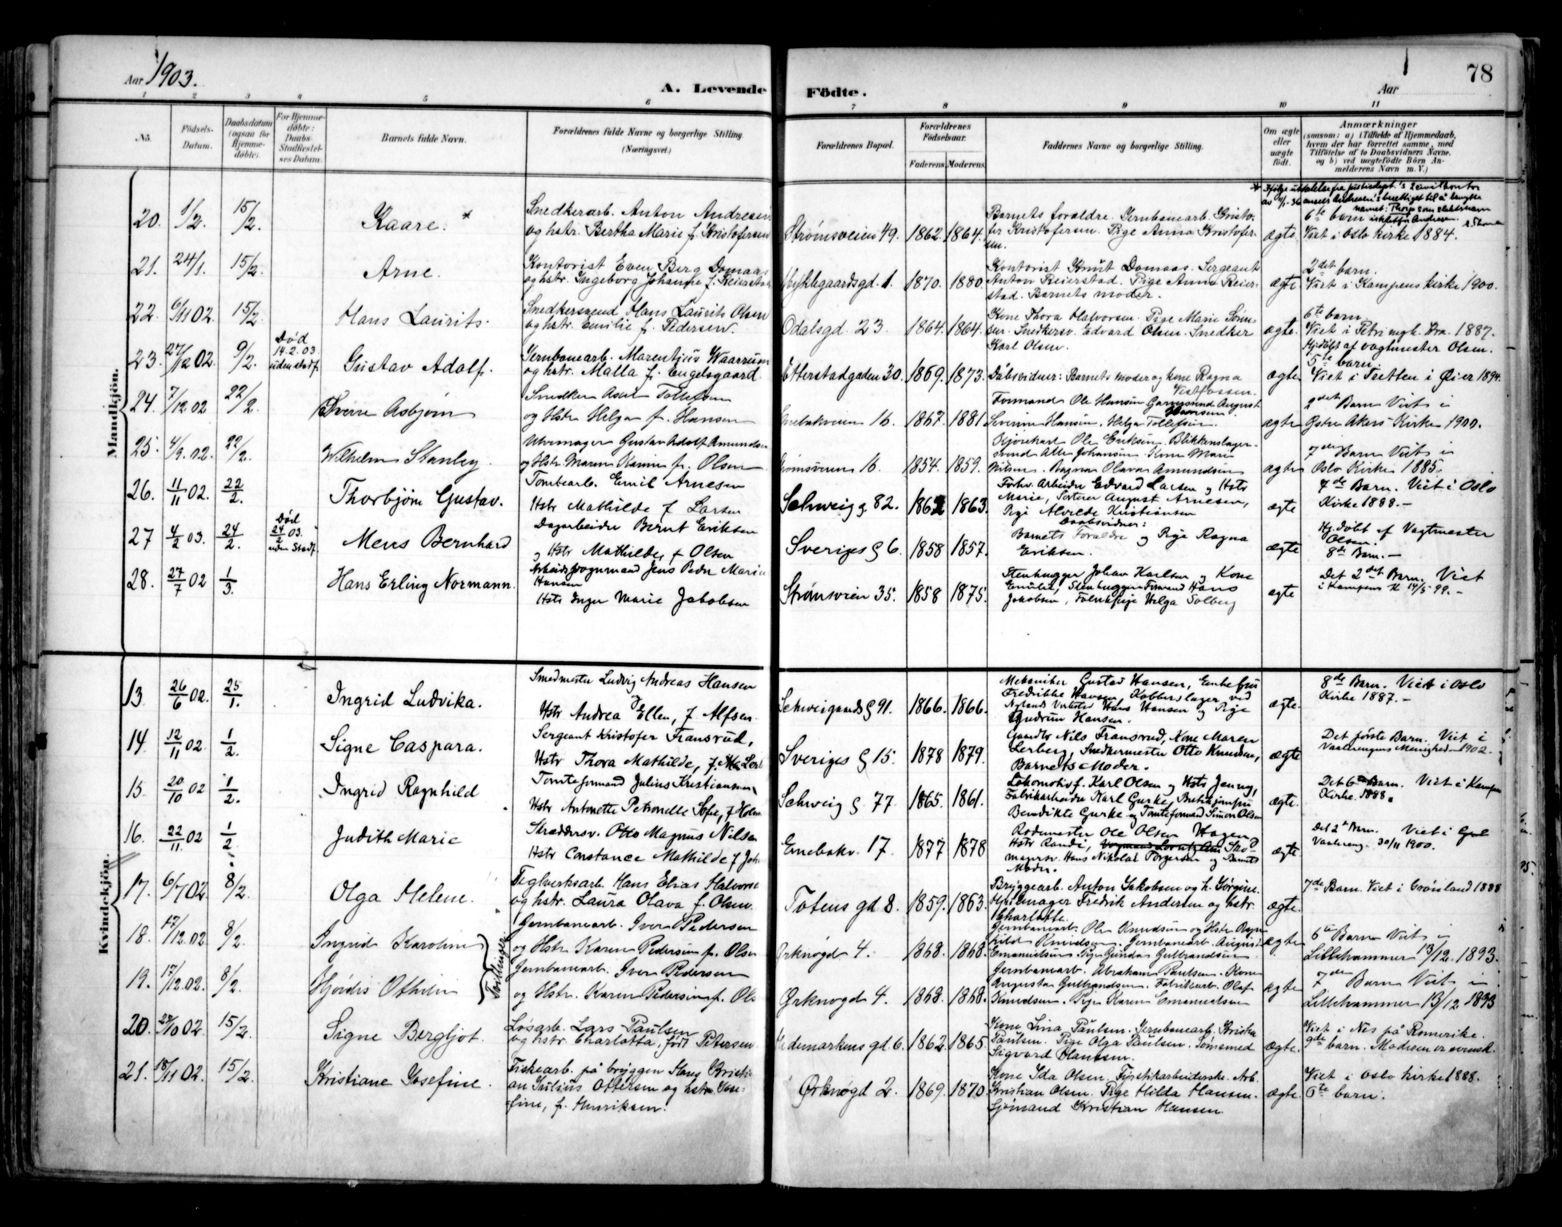 Aar 1903.
A. Levende Födte.
Aar
78
1 2 3 4 5 6 7 8 9 10 11
No.
Födsels-Datum.
Daabsdatum (ogsaa for Hjemmedøbte).
For Hjemmedøbte: Daabs-Stadfæstelses Datum.
Barnets fulde Navn.
Forældrenes fulde Navne og borgerlige Stilling. (Næringsvei.)
Forældrenes Bopæl.
Forældrenes Fødselsaar.
Faderens. Moderens.
Faddernes Navne og borgerlige Stilling.
Om ægte eller uægte født.
Anmærkninger
(saasom: a) i Tilfælde af Hjemmedaab, hvem der har forrettet samme, med Tilføielse af to Daabsvidners Navne. og b) ved uægtefödte Börn Anmelderens Navn m. V.)
Mandkjön.
20. 1/2 15/2 Kaare. * Snedkerarb. Anton Andresen og hstr. Bertha Marie f. Kristofersen Strømsveien 49. 1862. 1864. Barnets forældre. Jernbanearb. Kristofer Kristofersen. Pige Anna Kristofersen. ægte. 6te barn Viet i Oslo kirke 1884.
21. 24/1. 15/2. Arne. Kontorist Even Berg Domaas og hstr. Ingeborg Johanne f. Reierstad Nyklegaardsgd. 1. 1870. 1880. Kontorist Knut Domaas. Sergeant Anton Reierstad. Pige Anna Reierstad. Barnets moder. ægte 2det barn. Viet i Kampens kirke 1900.
22. 6/11 02. 15/2. Hans Laurits. Snedkersvend Hans Laurits Olsen og hstr. Emilie f. Pedersen. Odalsgd. 23. 1864. 1864. Kone Thora Halvorsen. Pige Marie Snedkersv. Edvard Olsen. Snedker Karl Olsen. ægte. 6te barn. Viet i Petri mgt. Bra. 1887.
23. 27/12 02. 9/2. Død 14.2.03 uden stadf. Gustav Adolf. Jernbanearb. Marentius Waarum og hstr. Malla f. Engelsgaard. Etterstadgaden 30. 1869. 1873. Dåbsvidner: Barnets moder og kone Ragna ægte Hj.døbt af vagtmester Olsen. 5te barn. Viet i Tretten i Øier 1894.
24. 7/12 02 22/2. Sverre Asbjørn Snedker Tollefsen og Hstr Helga f. Hansen Enebakveien 16. 1867. 1881. Formand Ole Hansen Hansen. Severine Hansen. Helga Tollefsen ægte 2det Barn Viet i Østre Akers Kirke 1900.
25. 4/9. 02. 22/2. Wilhelm Stanley. Urmager Gustav Adolf Amundsen og Hstr Maren Karine f. Olsen 16. 1854. 1859. Ole Eriksen. Blikkenslagersvend Johansen. Kone Marie Nilsen. Ragnar Olavar Amundsen ægte 7de Barn Viet i Oslo Kirke 1885.
26. 11/11 02. 22/2. Thorbjørn Gustav. Tømbearb. Emil Arnesen Hstr Mathilde f Larsen Schweig g 82. 1862 1863. Forhv. Arbeider Edvard Larsen og Hstr Marie, August Arnesen, Pige Alvilde Kristiansen ægte 7de Barn. Viet i Oslo Kirke 1888.–
27 4/2 03. 24/2. Død 24/2 03. uden Stadf. Mens Bernhard Dagarbeider Bernt Eriksen og Hstr Mathilde f Olsen Sveriges g 6. 1858 1857. Daabsvidner: Barnets Forældre og Pige Ragna Eriksen. ægte Hj.døbt af Vagtmester Olsen. 8de Barn.–
28. 27/7 02 1/3. Hans Erling Normann. Arbeidsvognmand Jens Peder Marius Hansen Hstr Inger Marie Jakobsen Strømsveien 35. 1858 1875. Stenhugger Johan Karlsen og Kone Emilie, Stenhugger Formand Hans Jakobsen, Fabrikpige Helga Solberg ægte Det 2det Barn. Viet i Kampens K 14/5 99.–
Kvindekjön.
13 26/6 02. 25/1. Ingrid Ludvika. Smedmester Ludvig Andreas Hansen Hstr Andrea Ellen, f. Alfsen. Schweigaards g 91. 1866. 1866. Mekaniker Gustav Hansen, Enkefru Fredrikke Hansen, Kobberslager ved Nylands Verksted Hans Hansen og Pige Gudrun Hansen. ægte. 8de Barn. Viet i Oslo Kirke 1887.–
14. 12/11 02. 1/2. Signe Caspara. Sergeant Kristofer Fransrud, Hstr Thora Mathilde, f. Sveriges g 15. 1878 1879. Nils Fransrud, Kone Maren Lerberg, Snedkermester Otto Knudsen, Barnets Moder. ægte Det første Barn. Viet i Vaalerengens Menighed 1902.
15. 20/10 02 1/2. Ingrid Ragnhild Tomteformand Julius Kristiansen, Hstr Antonette Petronelle Sofie, f Schweig g 77. 1865. 1861. Lokomotivf. Karl Olsen og Hstr Jenny, Fabrikarbeider Karl Gurke, Benedikte Gurke og Tomteformand Simon Olsen ægte. Det 6te Barn. Viet i Kampen Kirke 1888.
16. 22/11 02 1/2. Judith Marie Skræddersv. Otto Magnus Nilsen Hstr Constance Mathilde f Joh Enebakv. 17. 1877 1878 Rodemester Ole Olsen Hagen Hstr Randi, Skomagersv. Hans Nikolai Torgersen og Barnets Moder. ægte Det 2det Barn. Viet i Vaalereng. 30/11 1900.
17. 6/7 02 8/2. Olga Helene. Teglverksarb. Hans Elias Halvorsen og hstr. Laura Olava f. Olsen Totens gd 8. 1859. 1863. Bryggearb. Anton Jakobsen og h. Jørgine. Fredrik Andersen og hstr. Charlotte. ægte. 7de Barn. Viet i Grønland 1888
18. 17/12. 02. 8/2. Ingrid Karoline Jernbanearb. Iver Pedersen og Hstr. Karen Pedersen f. Olsen Ørknøgd 4. 1868. 1868. Jernbanearb. Ole Knudsen og Hstr. Ragnhild Knudsen. Jernbanearb. August Emanuelsen Pige Gunda Gulbrandsen ægte 6te Barn Viet i Lillehammer 13/12. 1893.
Tvillinger
19. 17/12. 02. 8/2. Hjørdis Othilie Jernbanearb. Iver Pedersen og Hstr. Karen Pedersen f. Ols Ørknøgd 4. 1868. 1868. Jernbanearb. Abraham Paulsen. Kone Augusta Gulbrandsen. Fabrikarb. Olaf Knudsen. Pige Karen Emanuelsen ægte 7de Barn Viet i Lillehammer 13/12 1893
20. 22/10 02. 15/2. Signe Bergljot. Løsarb. Lars Paulsen og hstr. Charlotta, født Petersen. Hedemarkens gd 6. 1862 1865 Kone Lina Paulsen. Jernbanearb. Kristian Paulsen. Pige Olga Paulsen. Sømsmed Sigvard Olaussen. ægte. Viet i Nes på Romerike. 9de barn. Moderen er svensk.
21. 18/11 02. 15/2. Kristiane Josefine. Fiskearb. på bryggen Hans Kristian Julius Ottersen og hstr. Josefine, f. Henriksen. Ørknøgd 2. 1869. 1870. Kone Ida Olsen. Fyrstikarbeiderske. Arb. Kristian Olsen. Pige Hilda Hansen. Sjømand Kristian Hansen ægte. Viet i Oslo kirke 1888. 5te barn.